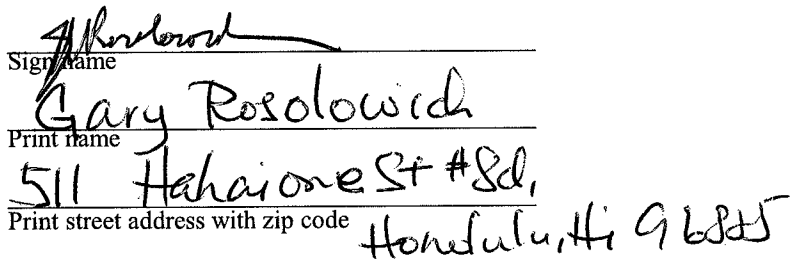 GRosolowich
Sign name
Gary Rosolowich
Print name
511 Hahaione St #8d,
Print street address with zip code
Honolulu, Hi 96825